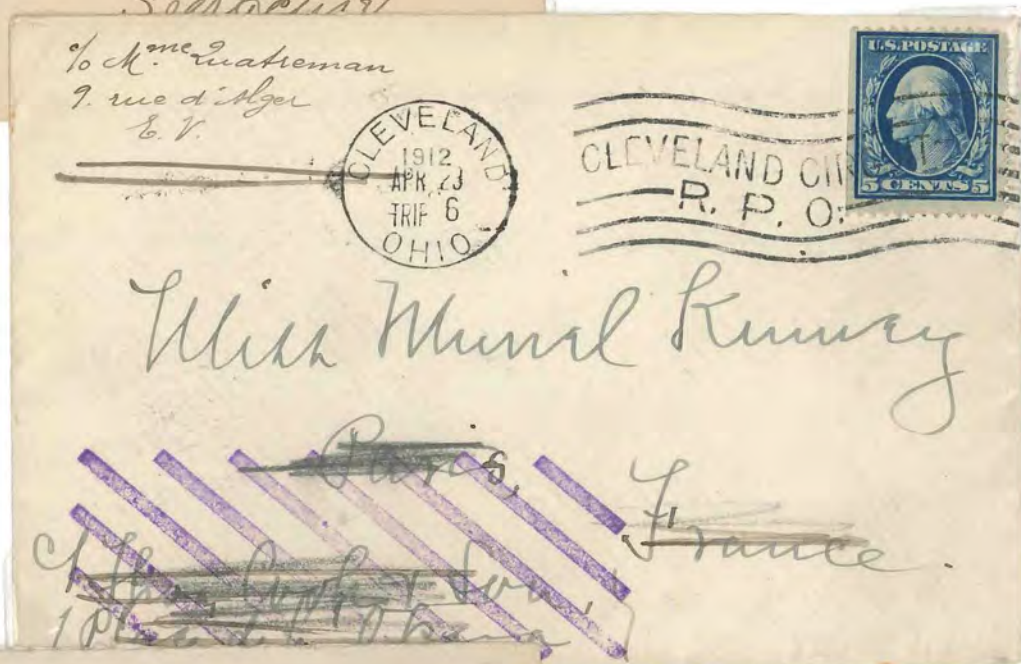 c/o Mme Quatreman
9. rue d'Alger
E. V.
CLEVELAND
1912
APR 23
TRIP 6
OHIO
CLEVELAND CIR
R. P. O.
U.S. POSTAGE
5 CENTS 5
Miss Muriel Kinney
Paris,
France
c/ Thos Cook & Son,
1 Place de l'Opera